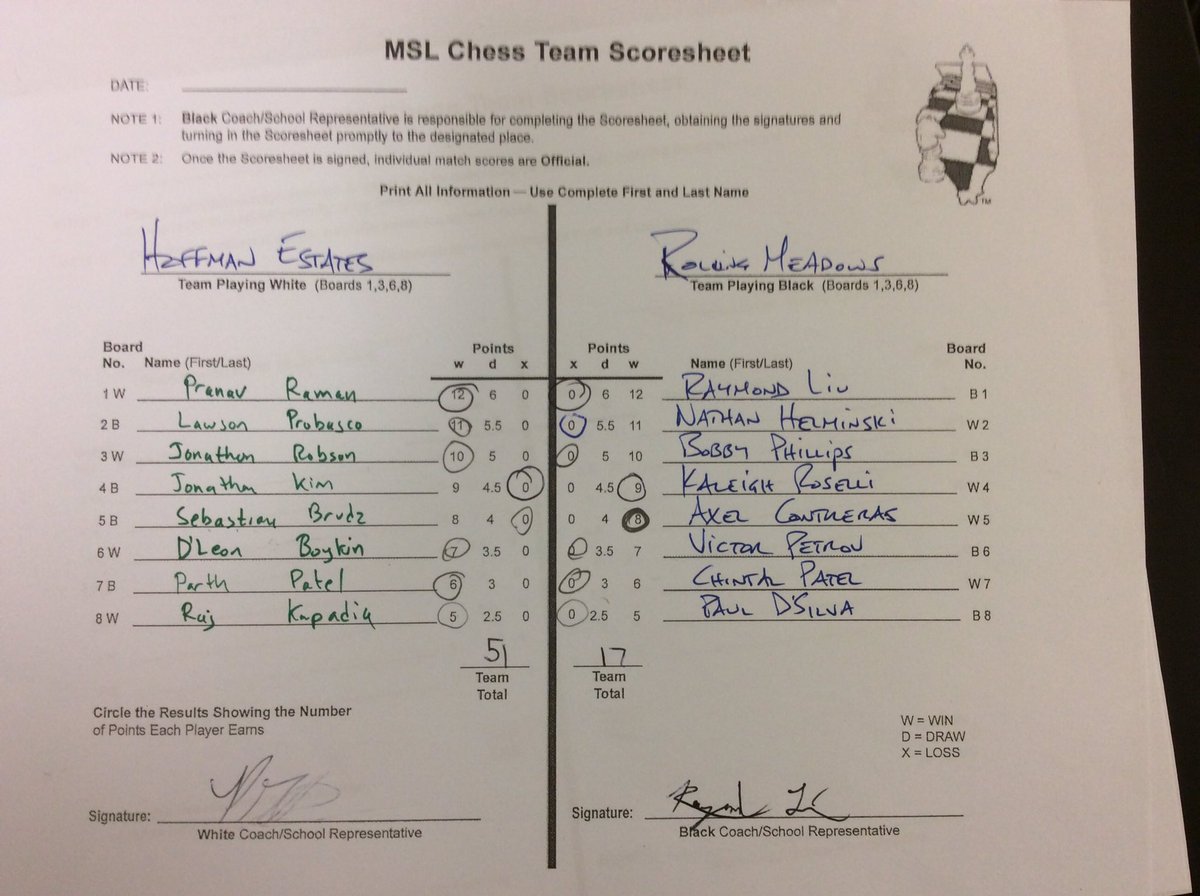 MSL Chess Team Scoresheet
DATE:
NOTE 1: Black Coach/School Representative is responsible for completing the Scoresheet, obtaining the signatures and
turning in the Scoresheet promptly to the designated place.
NOTE 2: Once the Scoresheet is signed, individual match scores are Official.
Print All Information — Use Complete First and Last Name
HOFFMAN ESTATES ROLLING MEADOWS
Team Playing White (Boards 1,3,6,8) Team Playing Black (Boards 1,3,6,8)
Board Points Points Board
No. Name (First/Last) w d x x d w Name (First/Last) No.
1 W Pranav Raman 12 6 0 0 6 12 RAYMOND LIU B 1
2 B Lawson Probasco 11 5.5 0 0 5.5 11 NATHAN HELMINSKI W 2
3 W Jonathan Robson 10 5 0 0 5 10 BOBBY PHILLIPS B 3
4 B Jonathan Kim 9 4.5 0 0 4.5 9 KALEIGH ROSELLI W 4
5 B Sebastian Brudz 8 4 0 0 4 8 AXEL CONTRERAS W 5
6 W D'Leon Boykin 7 3.5 0 0 3.5 7 VICTOR PETROV B 6
7 B Parth Patel 6 3 0 0 3 6 CHINTAL PATEL W 7
8 W Raj Kapadia 5 2.5 0 0 2.5 5 PAUL D'SILVA B 8
51 17
Team Team
Total Total
Circle the Results Showing the Number
of Points Each Player Earns
W = WIN
D = DRAW
X = LOSS
Signature: Signature: Raymond Li
White Coach/School Representative Black Coach/School Representative
TM